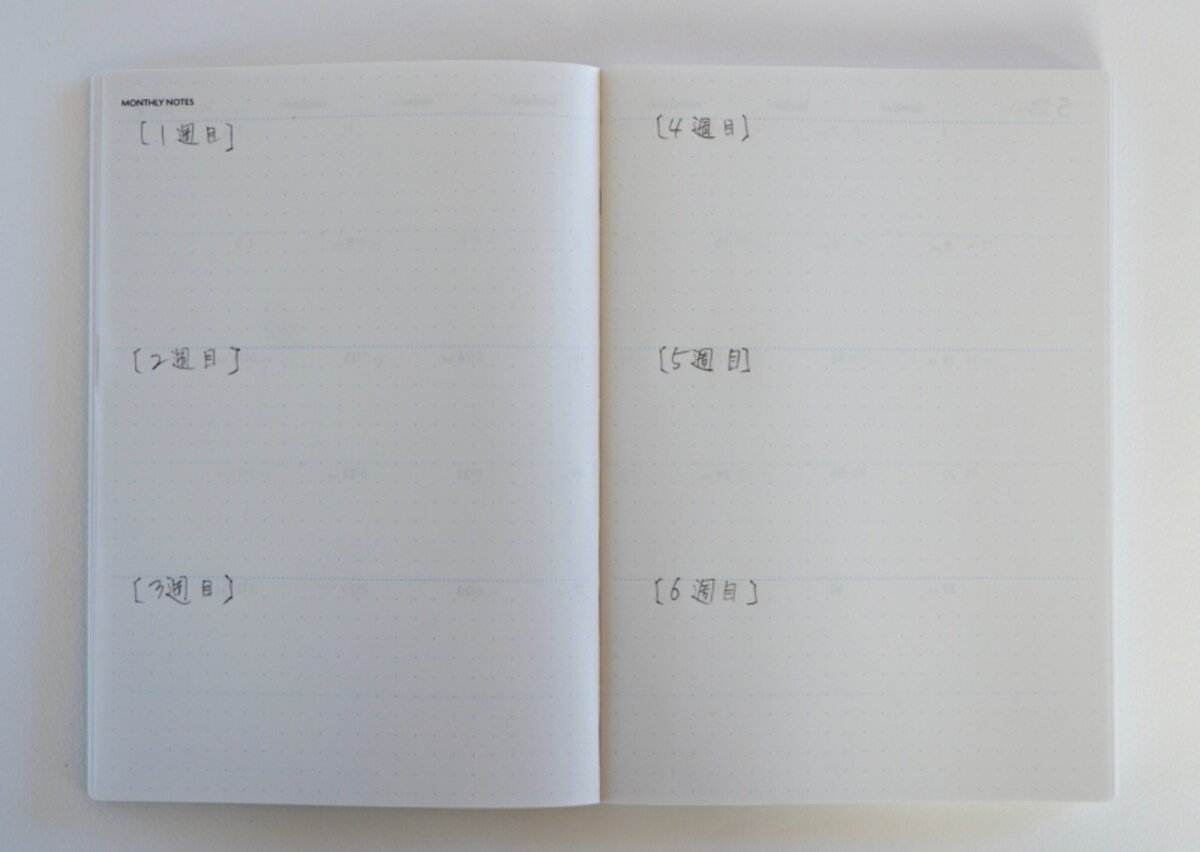 MONTHLY NOTES
[1週目]
[2週目]
[3週目]
[4週目]
[5週目]
[6週目]